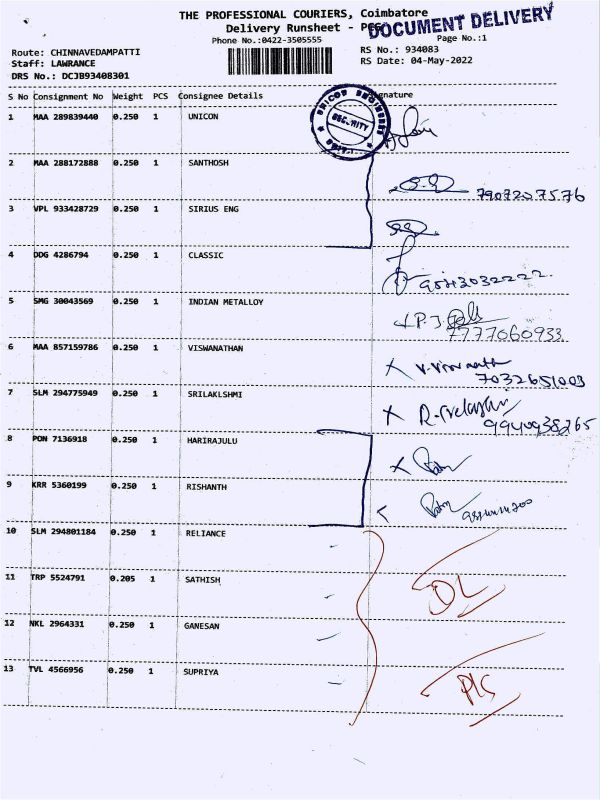 THE PROFESSIONAL COURIERS, Coimbatore
DOCUMENT DELIVERY
Delivery Runsheet -
Phone No.:0422-3505555 Page No.:1
Route: CHINNAVEDAMPATTI RS No.: 934083
Staff: LAWRANCE RS Date: 04-May-2022
DRS No.: DCJB93408301
S No Consignment No Weight PCS Consignee Details
1 MAA 289839440 0.250 1 UNICON
SECURITY
2 MAA 288172888 0.250 1 SANTHOSH
7907207576
3 VPL 933428729 0.250 1 SIRIUS ENG
4 DDG 4286794 0.250 1 CLASSIC
5 SMG 30043569 0.250 1 INDIAN METALLOY
7777060933
6 MAA 857159786 0.250 1 VISWANATHAN
7032651003
7 SLM 294775949 0.250 1 SRILAKLSHMI
9940938265
8 PON 7136918 0.250 1 HARIRAJULU
9 KRR 5360199 0.250 1 RISHANTH
10 SLM 294801184 0.250 1 RELIANCE
11 TRP 5524791 0.205 1 SATHISH
DL
12 NKL 2964331 0.250 1 GANESAN
13 TVL 4566956 0.250 1 SUPRIYA